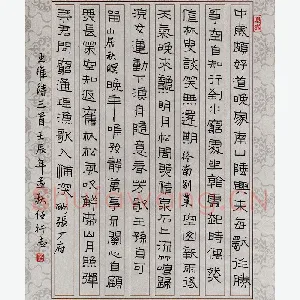 中歲頗好道晚家南山陲興來每獨往勝
事空自知行到水窮處坐看雲起時偶然值
林叟談笑無還期 終南別業 空山新雨後
天氣晚來秋明月松間照清泉石上流竹喧歸
浣女蓮動下漁舟隨意春芳歇王孫自可
留 山居秋暝 晚年唯好靜萬事不關心自顧
無長策空知返舊林松風吹解帶山月照彈
琴君問窮通理漁歌入浦深 酬張少府
王維詩三首壬辰年孟秋